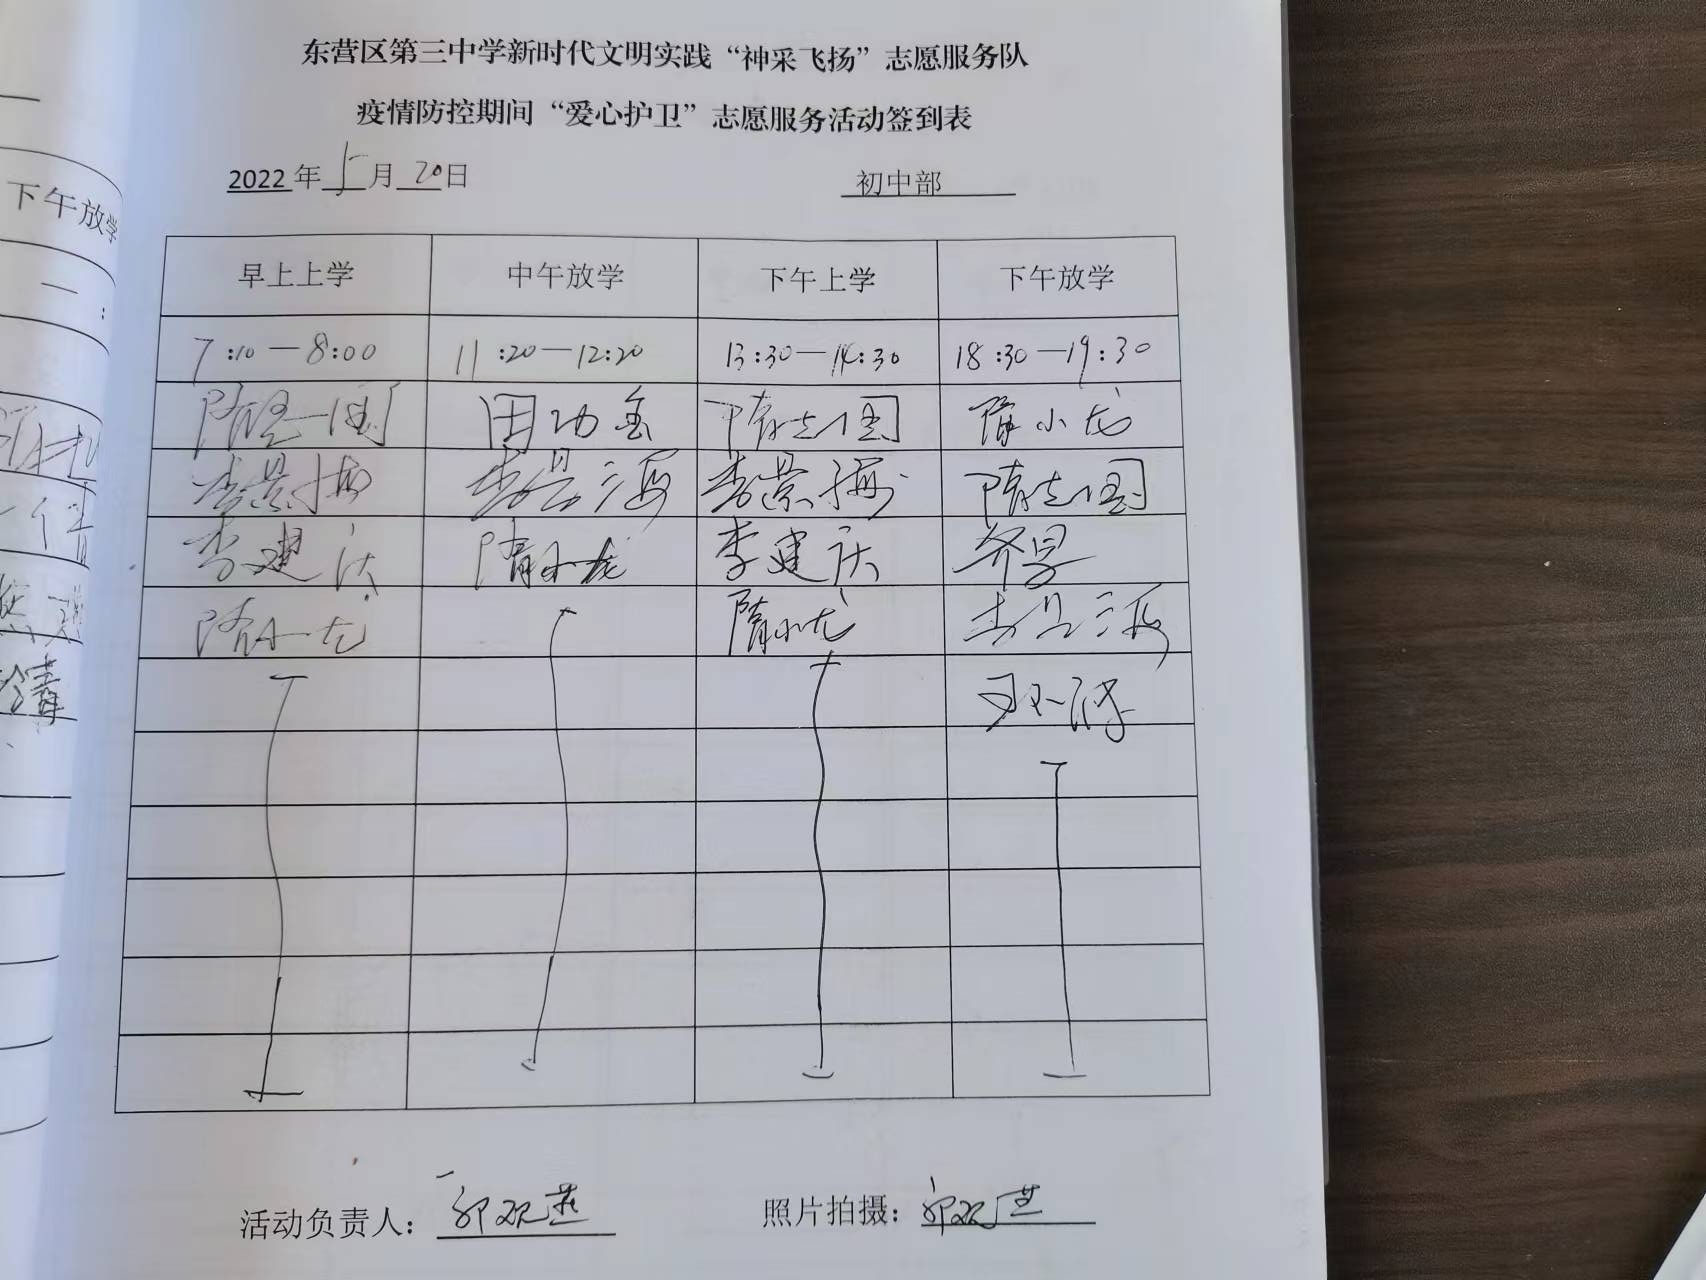 东营区第三中学新时代文明实践“神采飞扬”志愿服务队
疫情防控期间“爱心护卫”志愿服务活动签到表
2022年 5月 20日 初中部
早上上学 中午放学 下午上学 下午放学
7:10—8:00 11:20—12:20 13:30—14:30 18:30—19:30
隋志国 田功金 隋志国 隋小龙
李景海 李景海 李景海 隋志国
李建庆 隋小龙 李建庆
隋小龙 隋小龙 李景海
活动负责人： 照片拍摄：
下午放学